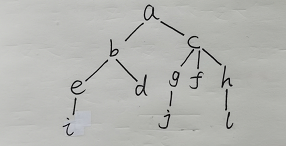 a
b c
e d g f h
i j l